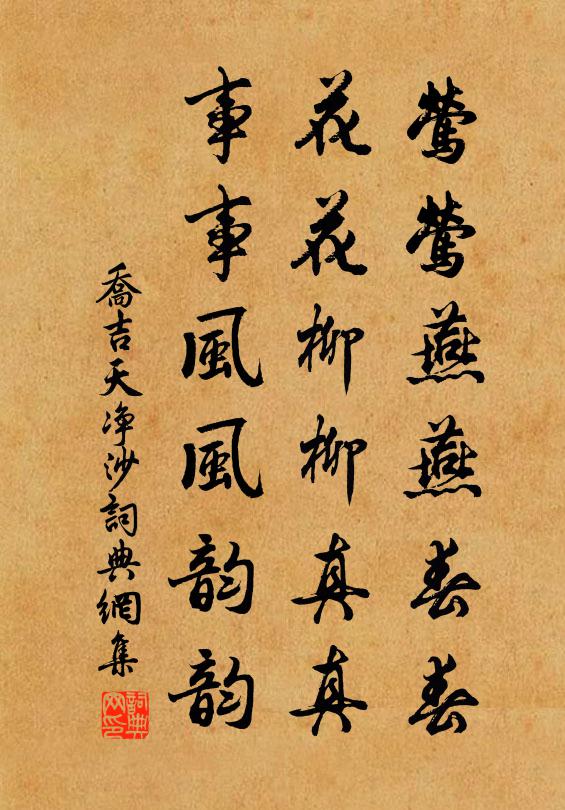 鶯鶯燕燕春春
花花柳柳真真
事事風風韵韵
喬吉天净沙詞典網集
詞典网印